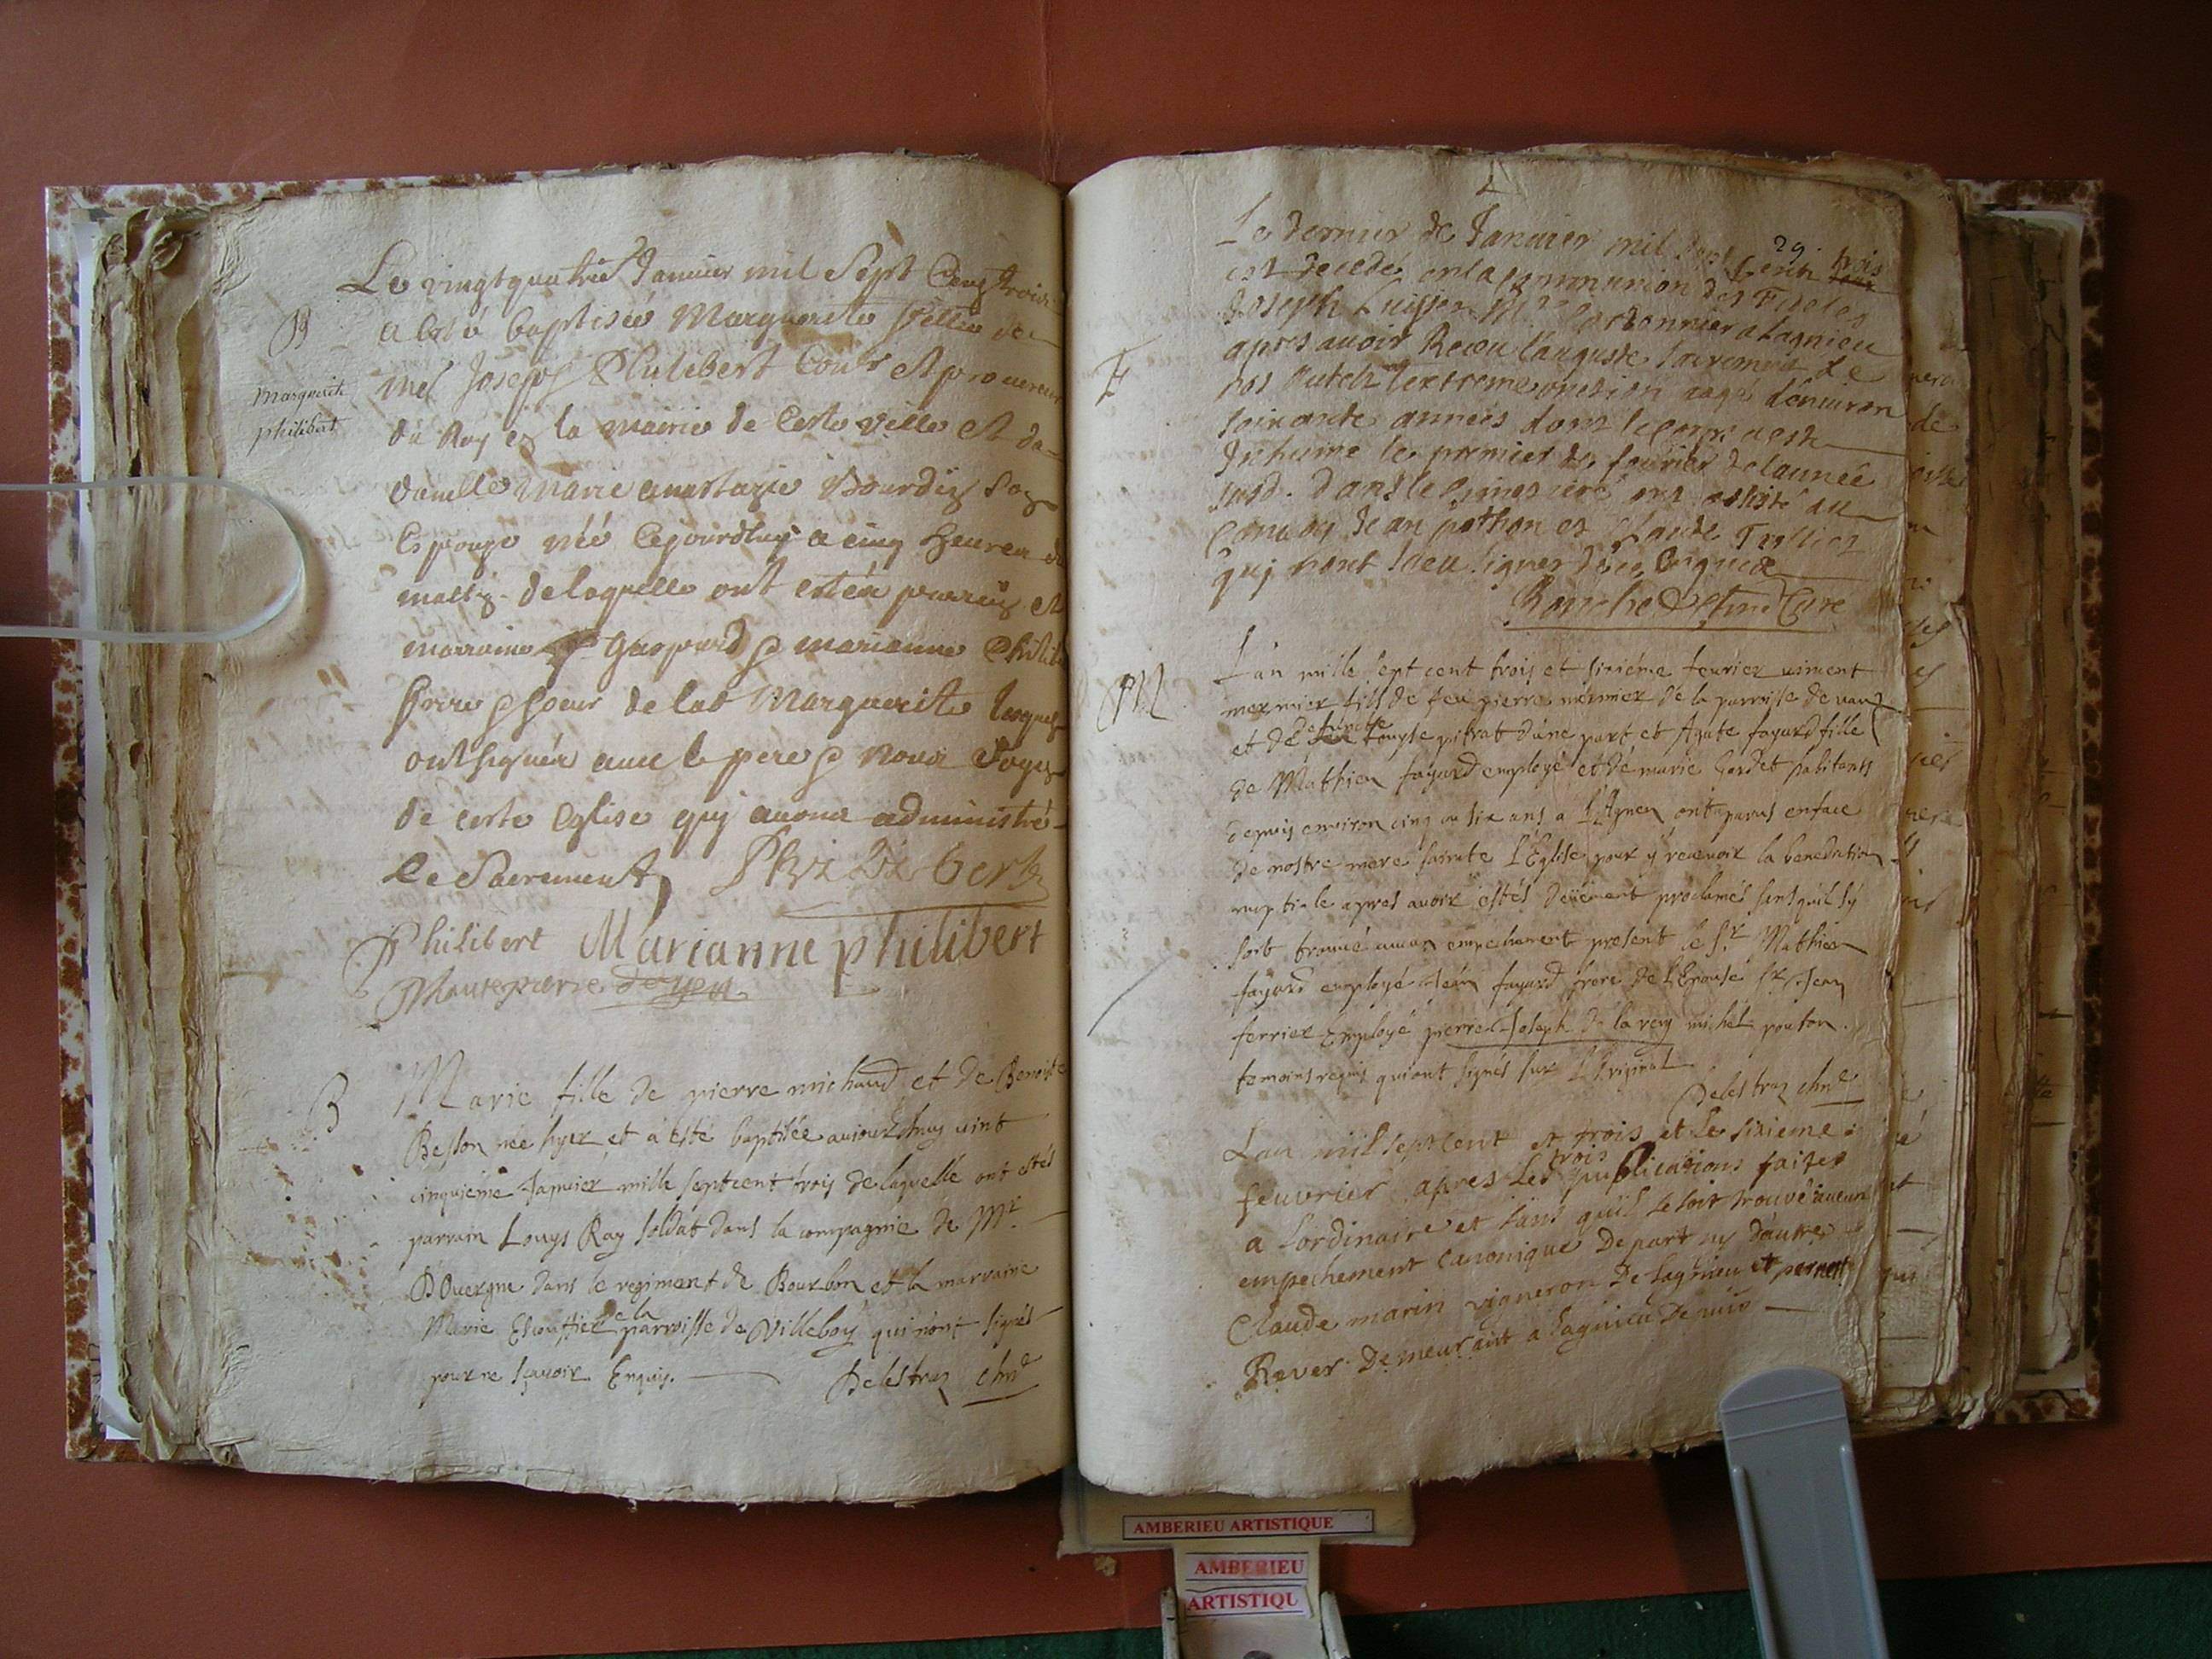 Le vingtquatrie Januier mil Sept Cens trois
B
a Esté baptisée Marguerite fille de
Marguerite
philibert
Mes Joseph Philibert Con.r et procureur
du Roy en la mairie de Ceste ville et da-
moiselle Marie anastazie Bourdin son
Espouze née Cejourdhuy a cinq heures du
mattin de laquelle ont estés parrein et
marraine Gaspard & marianne Philib
frere & soeur de lad Marguerite lesquels
ont signés auec le pere & Nous
de ceste Eglise quy auons administré
Le Sacrement Philibert
Philibert Marianne philibert
B
Marie fille de pierre michaud et de Benoite
Besson née hyer et a esté baptisée aujourdhuy vint
cinquieme Januier mille septcent trois de laquelle ont estés
parrain Louys Ray soldat dans la compagnie de Mr
DOuergne dans le regiment de Bourbon et la marraine
Marie Escoffier de la parroisse de Villeboy qui n'ont signés
pour ne sçauoir Enquis. Delestraz
29
Le dernier de Januier mil sept Cent trois
est decedé en la communion des Fideles
Joseph Cordonnier a Lagnieu
apres auoir Receu l'auguste sacrement de
F
l'extreme onction aagé d'enuiron
soixante années dont le corps a esté
Inhumé le premier de feurier de l'année
susd. dans le Cimestiere ont assisté au
Conuoy Jean pothon et Claude Trollier
quj n'ont sceu signer de ce Enquis
Curé
M
L'an mille sept cent trois et sixiéme feurier uincent
mermier fils de feu pierre mermier de la parroisse de vaux
et de defuncte Louyse pitrat d'une part et Agate fayard fille
de Mathieu fayard employé et de marie Gardet habitants
depuis enuiron cinq ou six ans a L'Agneu ont aparus enface
de nostre mere sainte L'Eglise pour y receuoir la benediction
nuptiale apres auoir estés deüement proclamés sans quil sy
soit trouué aucun empechement present le Sr Mathieu
fayard employé Jean fayard frere de l'Epouse Sr Jean
ferrier Employé pierre Joseph de la rey michel ponton.
temoins requis qui ont signés sur L'Original
Delestraz
Lan mil sept Cent et trois et Le sixieme
feuvrier apres Les trois publications faites
a Lordinaire et sans quil se soit trouvé aucun
empechement Canonique De part ny dautre
Claude marin vigneron De Lagnieu et pernett
Rever Demeurant a Lagnieu De mio
AMBERIEU ARTISTIQUE
AMBERIEU
ARTISTIQU